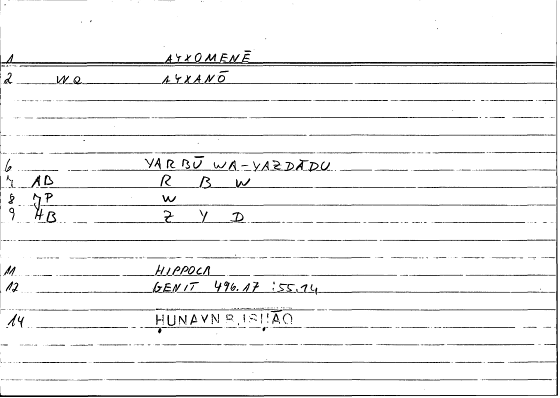 1 AYXOMENĒ
2 WQ AYXANŌ
6 YARBŪ WA-YAZDĀDU
7 AB R B W
8 7P W
9 AB Z Y D
11 HIPPOCR
12 GENIT 496.17 :55.14
14 ḤUNAYN B. ISḤĀQ